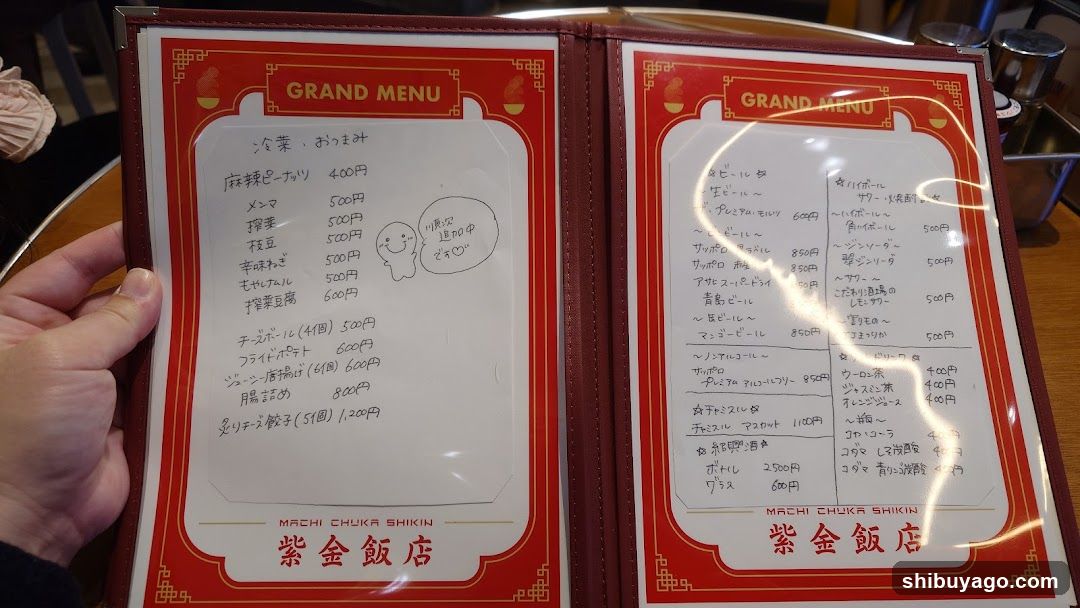 GRAND MENU
冷菜、おつまみ
麻辣ピーナッツ 400円
メンマ 500円
搾菜 500円
枝豆 500円
辛味ねぎ 500円
もやしナムル 500円
搾菜豆腐 600円
順次
追加中
です♡
チーズボール(4個) 500円
フライドポテト 600円
ジューシー唐揚げ(6個) 600円
腸詰め 800円
炙りチーズ餃子(5個) 1,200円
MACHI CHUKA SHIKIN
紫金飯店
GRAND MENU
☆ビール☆
~生ビール~
ザ・プレミアム・モルツ 600円
ビール~
サッポロ 850円
サッポロ 850円
アサヒスーパードライ
青島ビール
~缶ビール~
マンゴービール 850円
~ノンアルコール~
サッポロ
プレミアムアルコールフリー 850円
☆チャミスル☆
チャミスル マスカット 1100円
☆紹興酒☆
ボトル 2500円
グラス 600円
☆ハイボール
サワー・焼酎
~ハイボール~
角ハイボール 500円
~ジンソーダ~
翠ジンソーダ 500円
~サワー~
こだわり酒場の
レモンサワー 500円
~割りもの~
500円
ウーロン茶 400円
ジャスミン茶 400円
オレンジジュース 400円
コカ・コーラ
コダマ 炭酸
コダマ 青リンゴ炭酸
MACHI CHUKA SHIKIN
紫金飯店
shibuyago.com